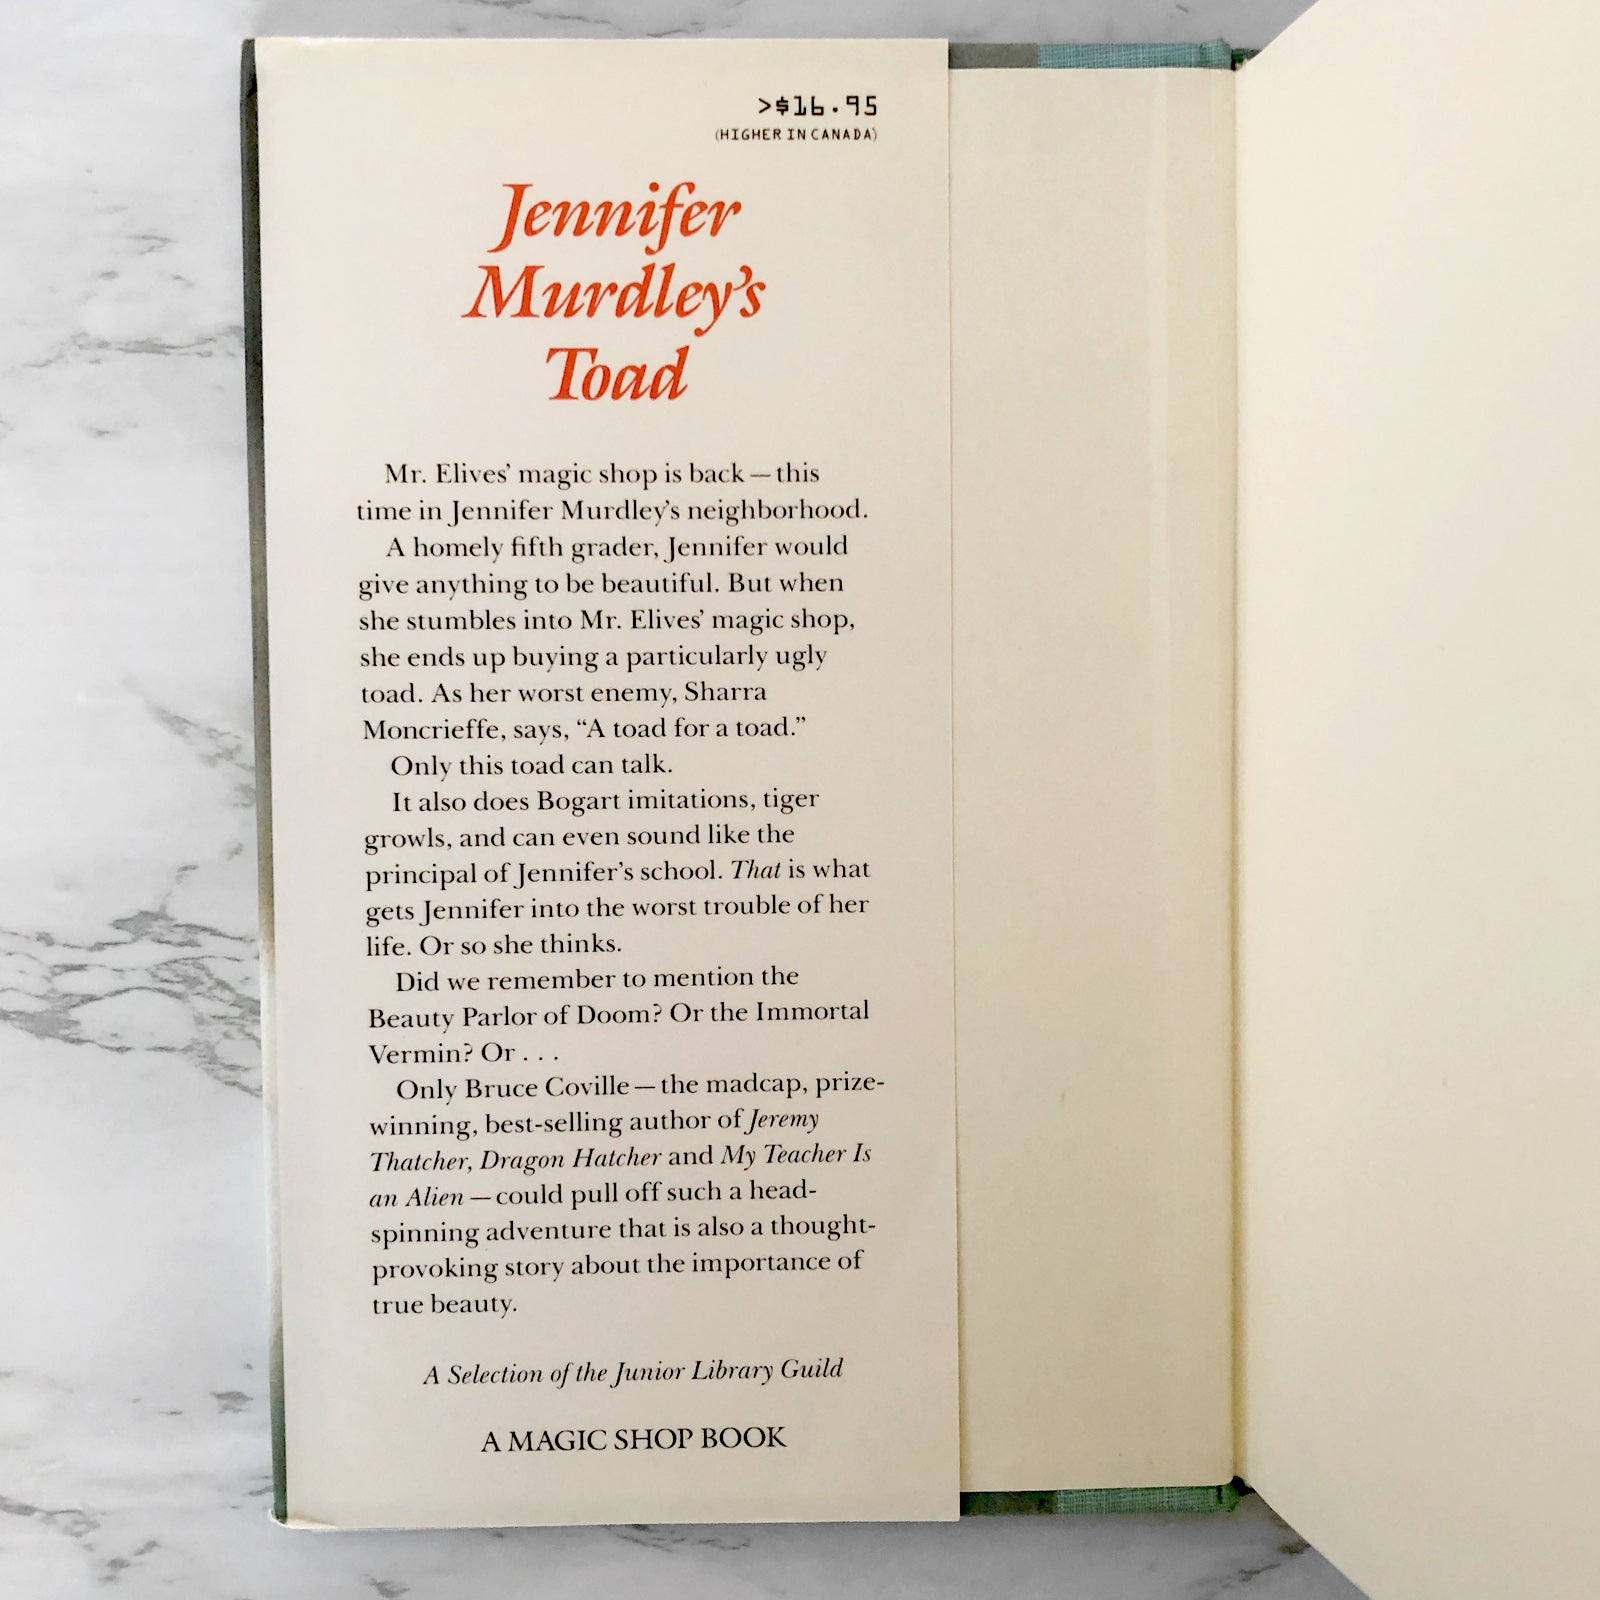 >$16.95
(HIGHER IN CANADA)
Jennifer
Murdley's
Toad
Mr. Elives' magic shop is back — this
time in Jennifer Murdley's neighborhood.
A homely fifth grader, Jennifer would
give anything to be beautiful. But when
she stumbles into Mr. Elives' magic shop,
she ends up buying a particularly ugly
toad. As her worst enemy, Sharra
Moncrieffe, says, “A toad for a toad.”
Only this toad can talk.
It also does Bogart imitations, tiger
growls, and can even sound like the
principal of Jennifer's school. That is what
gets Jennifer into the worst trouble of her
life. Or so she thinks.
Did we remember to mention the
Beauty Parlor of Doom? Or the Immortal
Vermin? Or . . .
Only Bruce Coville — the madcap, prize-
winning, best-selling author of Jeremy
Thatcher, Dragon Hatcher and My Teacher Is
an Alien — could pull off such a head-
spinning adventure that is also a thought-
provoking story about the importance of
true beauty.
A Selection of the Junior Library Guild
A MAGIC SHOP BOOK